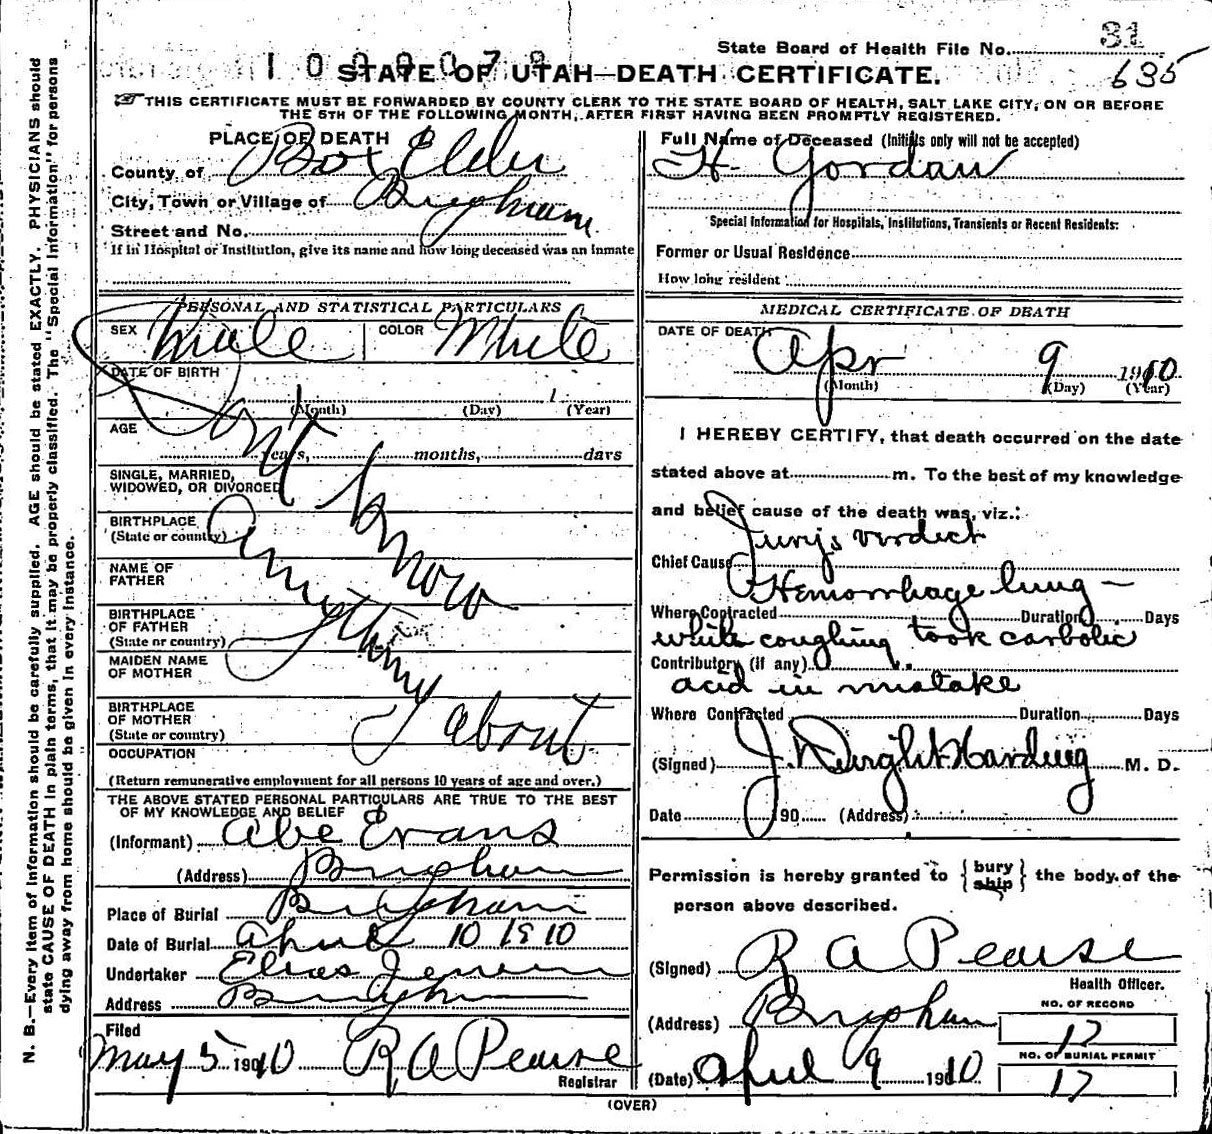 N. B.—Every item of information should be carefully supplied. AGE should be stated EXACTLY. PHYSICIANS should
state CAUSE OF DEATH in plain terms, that it may be properly classified. The "Special Information" for persons
dying away from home should be given in every instance.
State Board of Health File No. 31
635
STATE OF UTAH—DEATH CERTIFICATE.
THIS CERTIFICATE MUST BE FORWARDED BY COUNTY CLERK TO THE STATE BOARD OF HEALTH, SALT LAKE CITY, ON OR BEFORE
THE 5TH OF THE FOLLOWING MONTH, AFTER FIRST HAVING BEEN PROMPTLY REGISTERED.
PLACE OF DEATH
County of Box Elder
City, Town or Village of Brigham
Street and No.
If in Hospital or Institution, give its name and how long deceased was an inmate
PERSONAL AND STATISTICAL PARTICULARS
SEX Male COLOR White
DATE OF BIRTH
1
(Month) (Day) (Year)
AGE
years, months, days
SINGLE, MARRIED,
WIDOWED, OR DIVORCED
BIRTHPLACE
(State or country)
NAME OF
FATHER
BIRTHPLACE
OF FATHER
(State or country)
MAIDEN NAME
OF MOTHER
BIRTHPLACE
OF MOTHER
(State or country)
OCCUPATION
Dont know
anything
about
(Return remunerative employment for all persons 10 years of age and over.)
THE ABOVE STATED PERSONAL PARTICULARS ARE TRUE TO THE BEST
OF MY KNOWLEDGE AND BELIEF
(Informant) Abe Evans
(Address) Brigham
Place of Burial Brigham
Date of Burial April 10 1910
Undertaker Elias Jensen
Address Brigham
Filed
May 5 1910 R A Pearse
Registrar
Full Name of Deceased (Initials only will not be accepted)
H. Gordan
Special Information for Hospitals, Institutions, Transients or Recent Residents:
Former or Usual Residence
How long resident
MEDICAL CERTIFICATE OF DEATH
DATE OF DEATH
Apr 9 1910
(Month) (Day) (Year)
I HEREBY CERTIFY, that death occurred on the date
stated above at m. To the best of my knowledge
and belief cause of the death was, viz.:
Jury's verdict
Chief Cause
Hemorrhage lung —
Where Contracted Duration Days
while coughing took carbolic
Contributory (if any)
acid in mistake
Where Contracted Duration Days
(Signed) J. Dwight Harding M. D.
Date 190 (Address)
Permission is hereby granted to { bury ship } the body of the
person above described.
(Signed) R A Pearse
Health Officer.
(Address) Brigham
NO. OF RECORD
17
NO. OF BURIAL PERMIT
(Date) April 9 1910 17
(OVER)